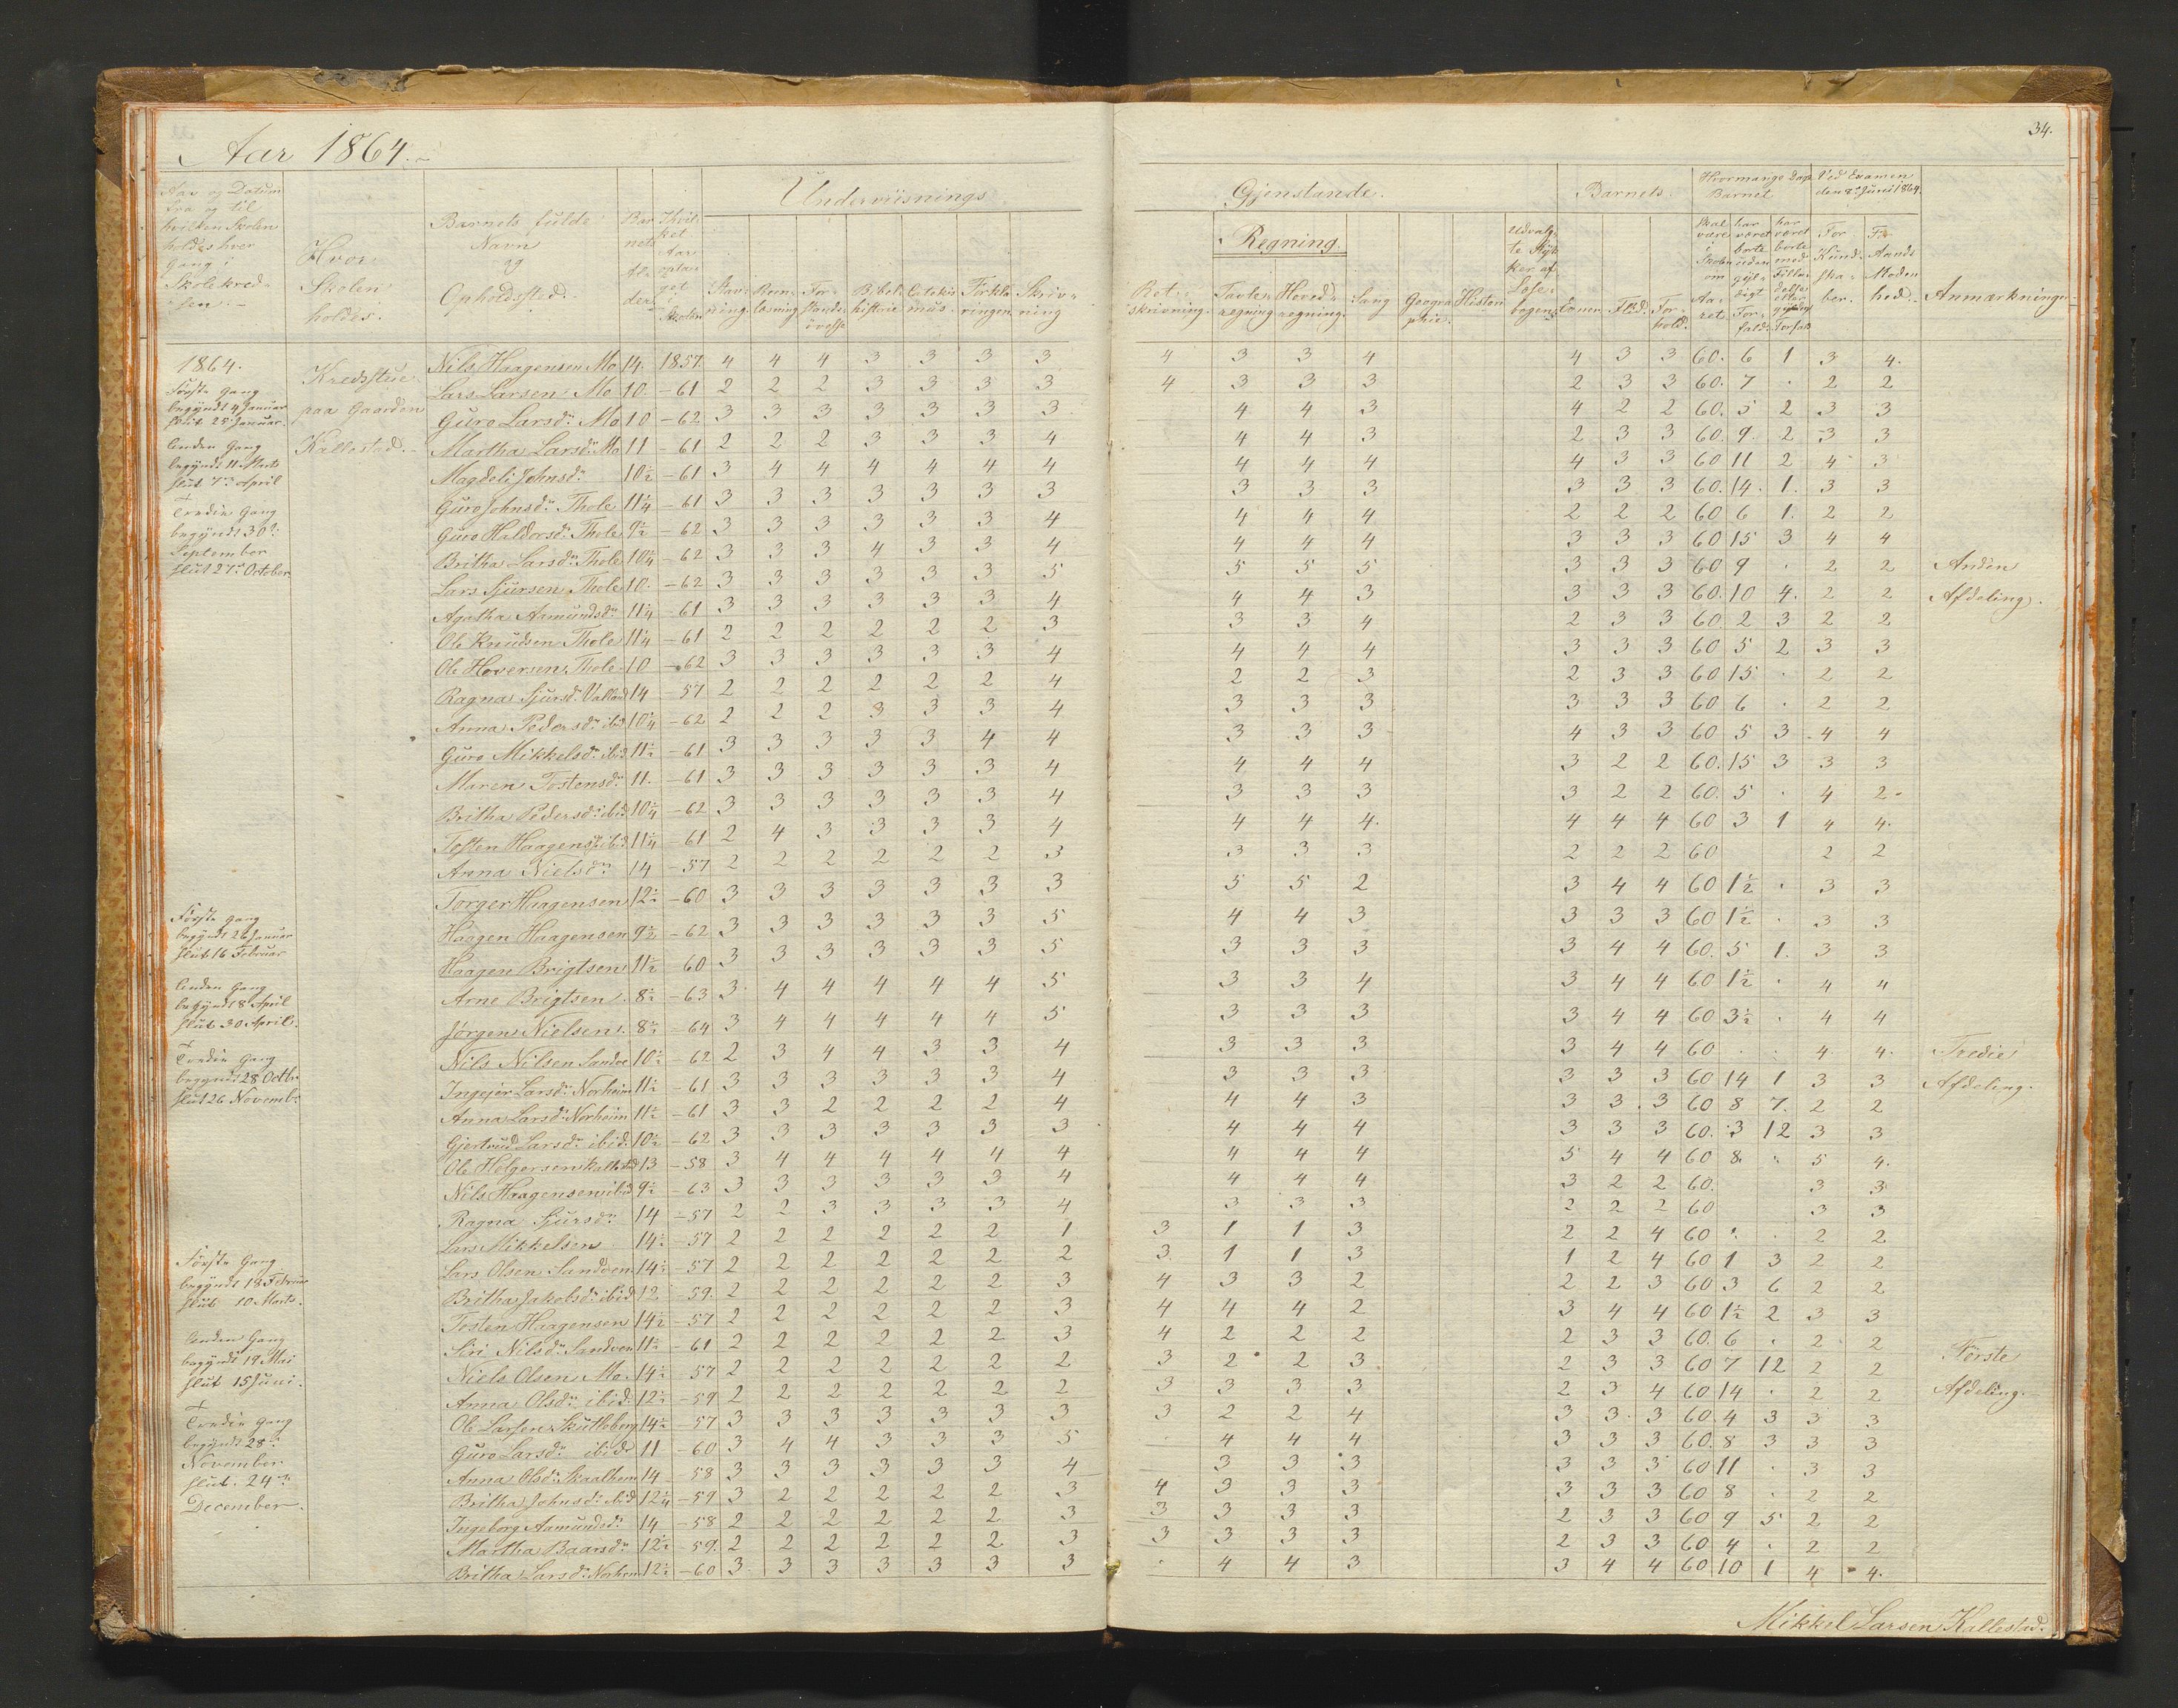 34.
Aar 1864.
Aar og Datum fra og til hvilken Skolen holdes hver Gang i Skolekredsen.
Hvor Skolen holdes.
Barnets fulde Navn og Opholdssted.
Barnets Alder
Hvilket Aar optaget i Skolen
Underviisnings Gjenstande.
Stavning. Forstandsövelse Bibelhistorie Catekismus. Forklaringen. Skrivning
Retskrivning. Regning. Tavleregning Hovedregning. Sang Geographie. Historie Udvalgte Stykker af Læsebogen.
Barnets Evner. Flid. Forhold.
Hvormange Dage Barnet
skal være i Skolen om Aaret
har været borte uden gyldigt Forfald.
har været borte med Tilladelse eller gyldigt Forfald
Ved Examen den 8de Juni 1864.
For Kundskaber. For Aands Modenhed.
Anmærkninger
1864.
Første Gang
begyndt 4 Januar
slut 25 Januar.
Anden Gang
begyndt 11 Marts
slut 7de April
Tredie Gang
begyndt 30te
September
slut 27de October
Kredsstue
paa Gaarden
Kallestad.
Nils Haagensen Mo 14. 1857. 4 4 4 3 3 3 3 4 3 3 4 4 3 3 60. 6 1 3 4.
Lars Larsen Mo 10. -61 2 2 2 3 3 3 3 4 3 3 3 2 3 3 60. 7 . 2 2
Guro Larsdr Mo 10 -62 3 3 3 3 3 3 3 4 4 3 4 2 2 60. 5 2 3 3
Martha Larsdr Mo 11 -61 2 2 2 3 3 3 4 4 4 3 2 3 3 60. 9. 2 3 3
Magdeli Johnsdr 10½ -61 3 4 4 4 4 4 4 4 4 4 4 3 3 60 11 2 4 3
Guro Johnsdr Thole 11¼ -61 3 3 3 3 3 3 3 3 3 3 3 3 3 60. 14. 1. 3 3
Guro Haldorsdr Thole 9½ -62 3 3 3 3 3 3 4 4 4 4 2 2 2 60 6 1. 2 2
Britha Larsdr Thole 10¼ -62 3 3 3 4 3 3 4 4 4 4 3 3 3 60 15 3 4 4
Lars Sjursen Thole 10. -62 3 3 3 3 3 3 5 5 5 5 3 3 3 60 9 . 2 2 Anden
Agatha Aamundsdr 11¼ -61 3 3 3 3 3 3 4 4 4 3 3 3 3 60. 10 4. 2 2 Afdeling.
Ole Knudsen Thole 11¼ -61 2 2 2 2 2 2 3 3 3 4 2 3 3 60. 2 3 2 2
Ole Hoversen Thole 10 -62 3 3 3 3 3 3 4 4 4 4 3 3 3 60 5 2 3 3
Ragna Sjursdr 14 -57 2 2 2 2 2 2 4 2 2 3 2 3 3 60 15 . 2 2
Anna Pedersdr ibid 10¼ -62 2 2 2 3 3 3 4 3 3 3 3 3 3 60 6 . 2 2
Guro Mikkelsdr ibid 11½ -61 3 3 3 3 3 4 4 3 3 3 4 3 3 60 5 3 4 4
Maren Tostensdr 11. -61 3 3 3 3 3 3 4 4 4 4 3 2 2 60. 15 3 3 3
Britha Pedersdr ibid 10¼ -62 3 3 3 3 3 3 4 3 3 3 3 2 2 60. 5 . 4 2
Tosten Haagensen ibid 11¼ -61 2 4 3 3 3 3 4 4 4 4. 4 4 4 60 3 1 4 4.
Anna Nielsdr 14 -57 2 2 2 2 2 2 3 3 3 3 2 2 2 60 2 2
Torger Haagensen 12½ -60 3 3 3 3 3 3 3 5 5 2 3 4 4 60 1½ . 3 3
Første Gang
begyndt 26 Januar
slut 16 Februar
Anden Gang
begyndt 8 April
slut 30 April.
Tredie Gang
begyndt 28 Octbr
slut 26 Novembr
Haagen Haagensen 9½ -62 3 3 3 3 3 3 5 4 4 3 3 3 3 60 1½ . 3 3
Haagen Brigtsen 11½ 60 3 3 3 3 3 3 5 3 3 3 3 4 4 60. 5 1. 3 3
Arne Brigtsen. 8½ -63 3 4 4 4 4 4 5 3 3 4 3 4 4 60 1½ . 4 4
Jörgen Nielsen. 8½ -64 3 4 4 4 4 4 5 3 3 3 3 4 4 60 3½ . 4 4
Nils Nilsen Sandve 10½ -62 2 3 4 4 3 3 4 3 3 3 3 4 4 60 . . 4 4. Tredie
Ingejer Larsdr Norheim 11½ -61 3 3 3 3 3 3 4 3 3 3 3 3 3 60 14 1 3 3 Afdeling.
Anna Larsdr Norheim 11½ -61 3 3 2 2 2 2 4 4 4 3 3 3. 3 60 8 7. 2 2
Gjertrud Larsdr ibid. 10½ -62 3 3 3 3 3 3 3 4 4 4 3 3 3 60. 3 12 3 3
Ole Holgersen Kallestad 13 -58 3 4 4 4 4 4 4 4 4 4 5 4 4 60 8 . 5 4.
Nils Haagensen ibid 9½ -63 3 3 3 3 3 3 4 4 4 4 3 2 2 60. 3 3
Ragna Sjursdr 14 -57 2 2 3 3 3 3 4 3 3 3 2 2 2 60 3 3
Lars Mikkelsen 14½ -57 2 2 2 2 2 2 1 3 1 1 3 2 2 4 60 . . 2 2
Første Gang
begyndt 18 Februar
slut 10 Marts.
Anden Gang
begyndt 19 Mai
slut 15 Juni.
Tredie Gang
begyndt 28de
November
slut. 24de
December.
Lars Olsen Sandven 14½ -57 2 2 2 2 2 2 2 3. 1 1 3 1 2 4 60 1 3 2 2
Britha Jakobsdr ibid 12 59. 2 2 2 2 2 2 3 4 3 3 2 2 2 3 60 3 6 2 2
Tosten Haagensen 14½ -57 2 2 2 2 2 2 3 4 4 4 2 3 4 4 60 1½ 2 3 3
Siri Nilsdr Sandven 11½ -61 2 2 2 2 2 2 3 4 2 2 2 2 3 3 60. 6 . 2 2
Niels Olsen Mo. 14½ 57 2 2 2 2 2 2 2 3 2 2 3 2 3 3 60 7 12 2 2 Første
Anna Olsdr ibid. 12½ -59 2 2 2 2 2 2 2 3 3 3 3 2 3 4 60 14 . 2 2 Afdeling.
Ole Larsen Skutleberg 14½ -57 3 3 3 3 3 3 3 3 2 2 4 3 3 3 60. 4 3 3 3
Guro Larsdr ibid 11 -60 3 4 4 3 3 3 5 4 4 4 3 3 3 60. 8 3 3 3
Anna Olsdr Skaalheim 14 -58 3 3 3 3 3 3 4 3 3 3 3 3 3 60 11 . 3 3
Britha Johnsdr ibid 12¼ -59 3 2 2 2 2 2 3 4 3 3 3 3 3 3 60 8 . 2 2
Ingeborg Aamundsdr 14 -58 2 2 2 2 2 2 3 3 3 3 3 2 3 3 60 9 5 2 2
Martha Baarsdr 12½ -59. 2 2 2 2 2 2 3 3 3 3 3 2 3 3 60 4 . 2 2
Britha Larsdr Norheim 12½ -60 3 3 3 3 3 3 3 . 4 4 3 3 4 4 60 10 1 4 4.
Mikkel Larsen Kallestad.